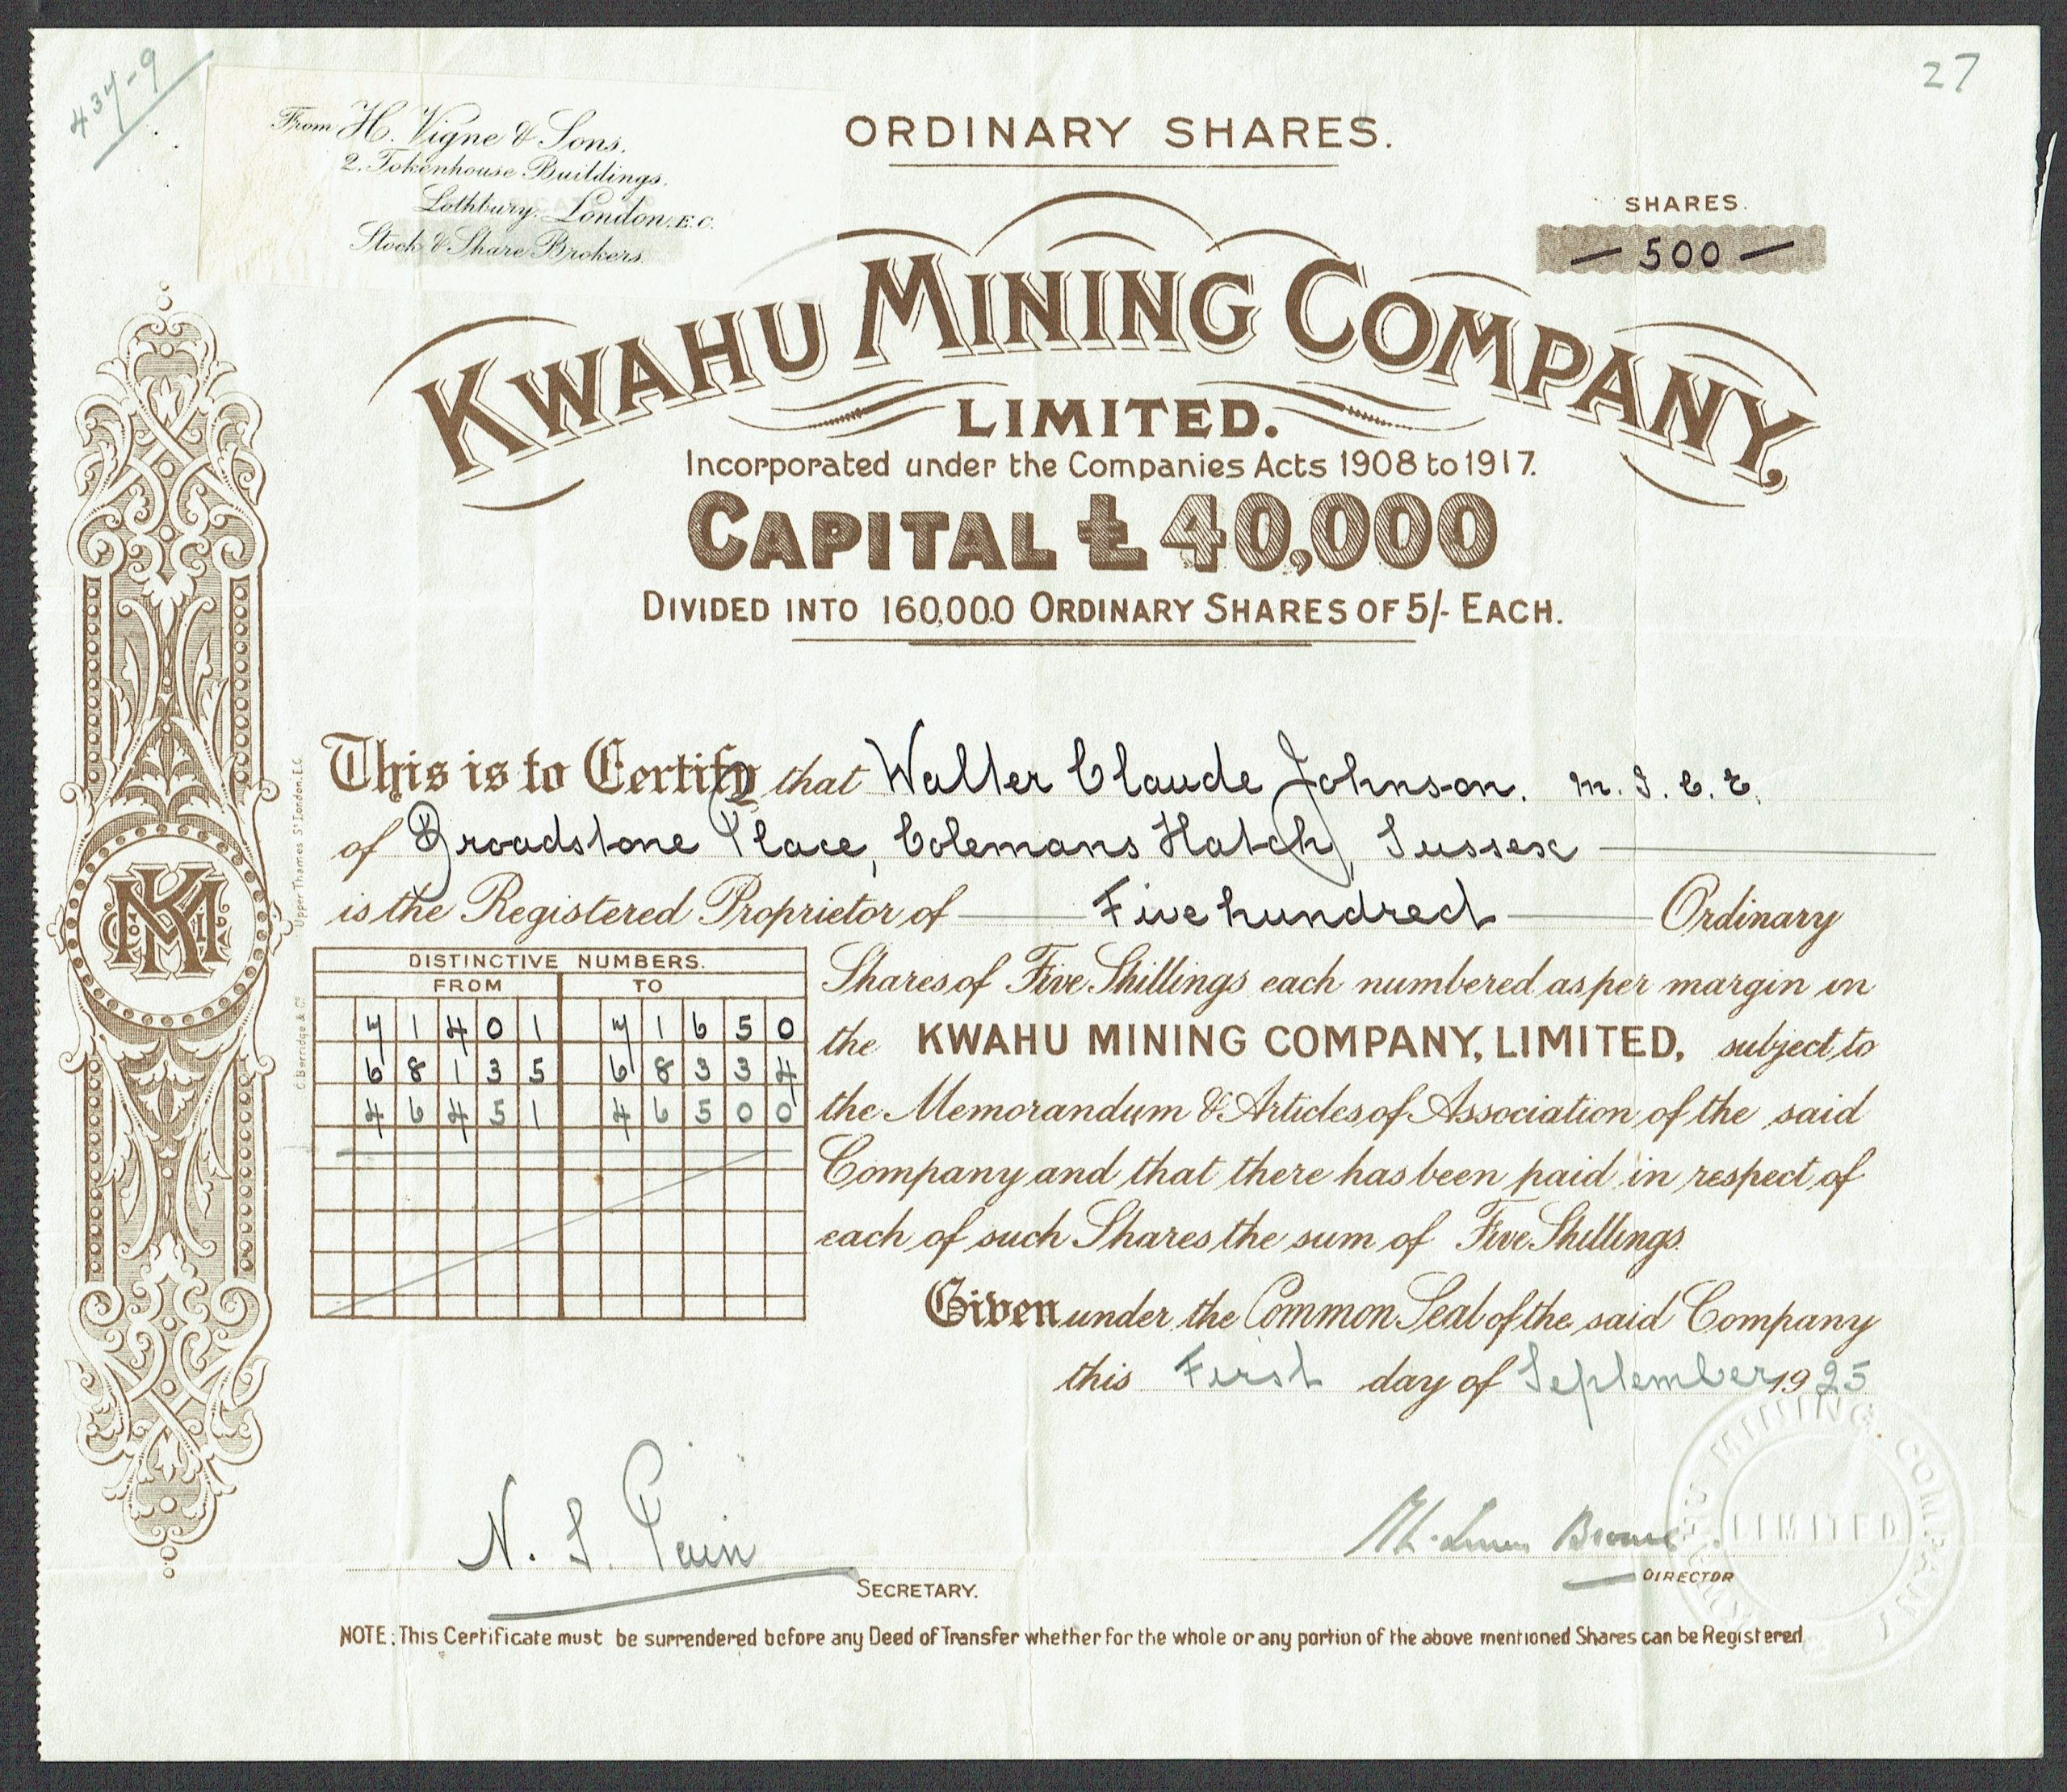 437-9
27
From H. Vigne & Sons.
2. Tokenhouse Buildings.
Lothbury. London. E.C.
Stock & Share Brokers.
ORDINARY SHARES.
SHARES.
— 500 —
KWAHU MINING COMPANY,
LIMITED.
Incorporated under the Companies Acts 1908 to 1917.
CAPITAL £40,000
DIVIDED INTO 160,000 ORDINARY SHARES OF 5/- EACH.
This is to Certify that Walter Claude Johnson. M.I.C.E.
of Broadstone Place, Colemans Hatch, Sussex
is the Registered Proprietor of Five hundred Ordinary
DISTINCTIVE NUMBERS.
FROM TO
71401 71650
68135 68334
46451 46500
Shares of Five Shillings each numbered as per margin in
the KWAHU MINING COMPANY, LIMITED, subject to
the Memorandum & Articles of Association of the said
Company and that there has been paid in respect of
each of such Shares the sum of Five Shillings.
Given under the Common Seal of the said Company
this First day of September 1925
N. S. Pain
SECRETARY.
DIRECTOR
KWAHU MINING COMPANY
LIMITED
NOTE: This Certificate must be surrendered before any Deed of Transfer whether for the whole or any portion of the above mentioned Shares can be Registered
C. Berridge & Co. Upper Thames St. London. E.C.
KM